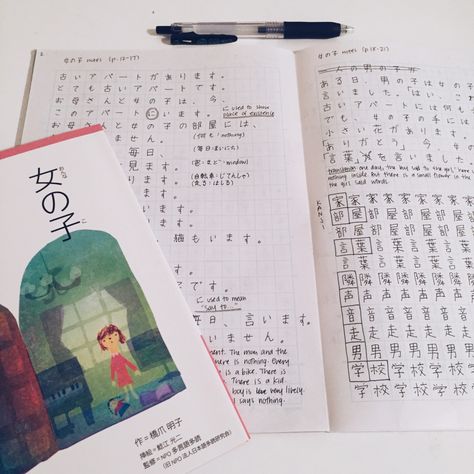 女の子 notes (p.12-17)
古いアパートがあります。
とても古いアパートです。
お母さんと女の子は、今、
古いアパートにいます。
に used to show place of existence
お母さんと女の子の部屋には、
(何も / nothing)
毎日、
(毎日・まいにち)
見ます。
(窓・まど・window)
(自転車・じてんしゃ)
(走る・はしる)
ます。
猫もいます。
です。
に used to mean "say to..."
毎日、言います。
いません。
The mom and the
here is nothing. Every
is a bike. There is
There is a kid
boy is very lively.
l says nothing.
女の子 notes (p.18-21)
ある日、男の子は女の子
言いました。「はい、こ
古いアパートには何も
でも、女の子の手には
小さい花があります。
「ありがとう」今、女の
「言葉」を言いました。
translation: one day, the boy said to the girl, "here
nothing inside but there is a small flower in the
the girl said words.
KANJI
家家家家家家
部屋部屋部屋
部屋部屋部屋
言葉言葉言葉
言葉言葉言葉
隣隣隣隣隣隣
声声声声声声
音音音音音音
走走走走走走
男男男男男男
学校学校学校
学校学校学校
女の子
おんな
こ
作=橋爪 明子
挿絵=鯰江 光二
監修=NPO 多言語多読
(旧 NPO 法人日本語多読研究会)